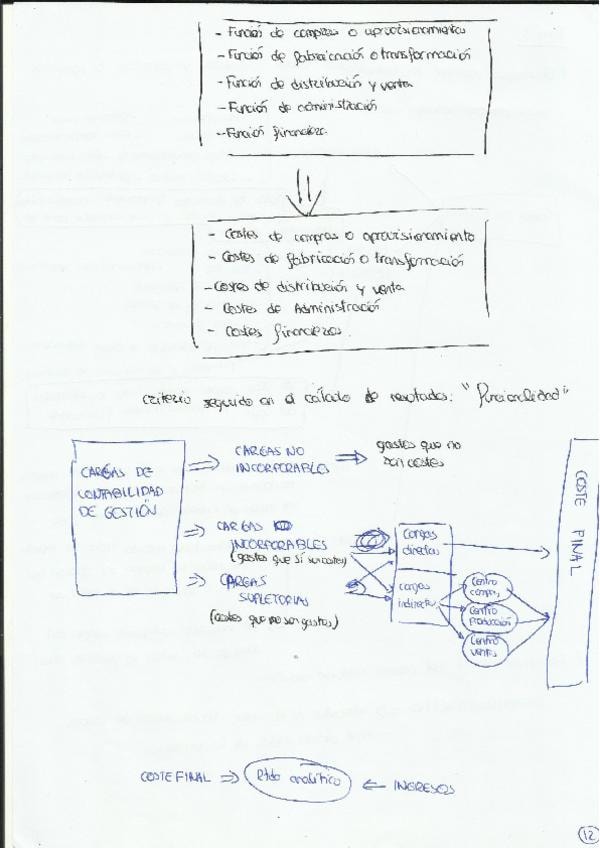 - Función de compras o aprovisionamiento
- Función de fabricación o transformación
- Función de distribución y venta
- Función de administración
- Función financiera.
- Costes de compras o aprovisionamiento
- Costes de fabricación o transformación
- Costes de distribución y venta
- Costes de Administración
- Costes financieros.
Criterio seguido en el cálculo de resultados: "funcionalidad"
CARGAS DE
CONTABILIDAD
DE GESTIÓN
CARGAS NO
INCORPORABLES
gastos que no
son costes
CARGAS
INCORPORABLES
(gastos que sí son costes)
CARGAS
SUPLETORIAS
(costes que no son gastos)
Cargas
directas
cargas
indirectas
Centro
compras
Centro
Producción
Centro
ventas
COSTE FINAL
COSTE FINAL ⇒ Rtdo analítico ⇐ INGRESOS
12